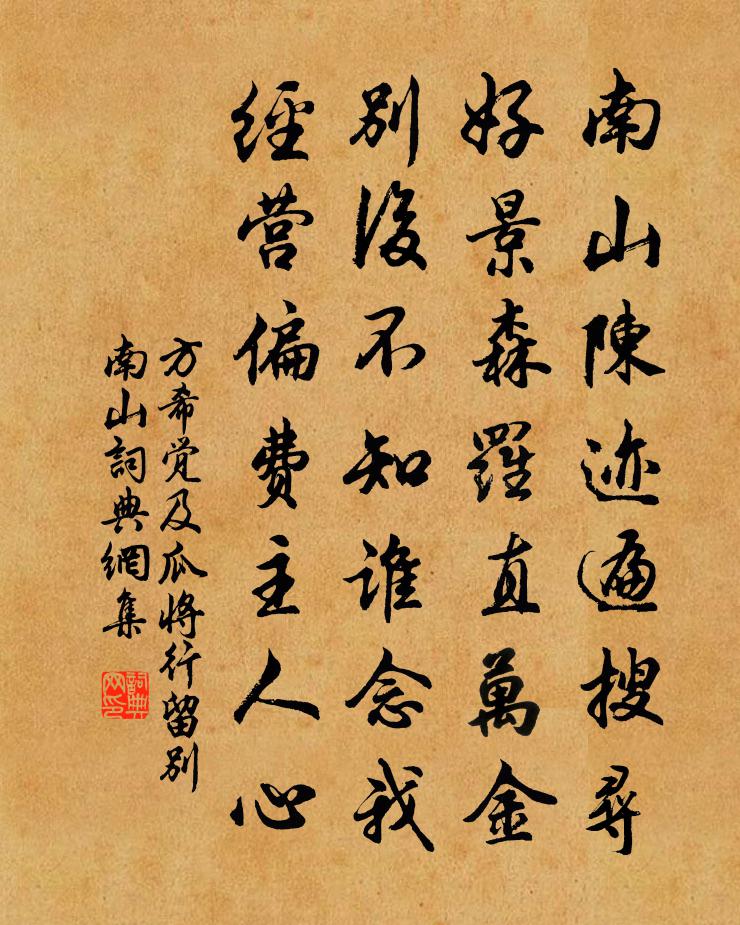 南山陳迹遍搜尋
好景森羅直萬金
別後不知誰念我
經营偏費主人心
方希觉及瓜将行留别
南山詞典網集
詞典
网印